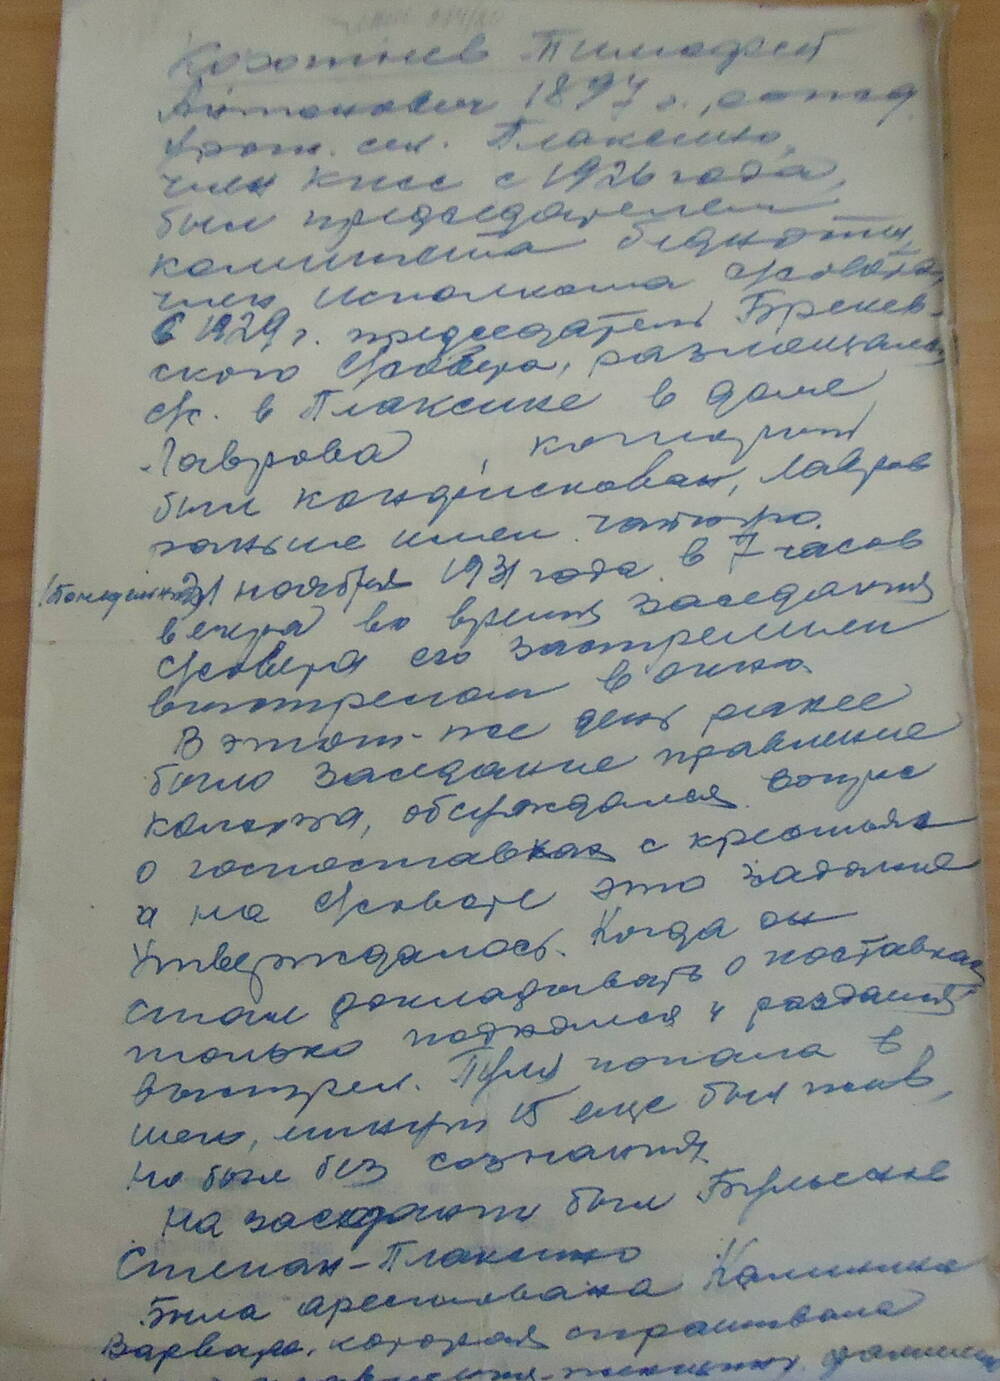 Коротнев Тимофей
Антонович 1897 г., рожд.
урож. сел. Плаксино,
член КПСС с 1926 года,
был председателем
комитета бедноты,
член исполкома с/совета,
С 1929 г. председатель
ского с/совета, размещался
с/с. в Плаксине в доме
Лаврова, который
был конфискован, Лавров
раньше имел
(Понедельник) 1 ноября 1931 года в 7 часов
вечера во время заседания
с/совета его застрелили
выстрелом в окно.
В этот-же день ранее
было заседание правление
колхоза, обсуждался вопрос
о госпоставках с крестьян
а на с/совете это задание
утверждалось. Когда он
стал докладывать о поставках
только поднялся и раздался
выстрел. Пуля попала в
шею, минут 15 еще был жив,
но был без сознания.
На заседании был
Степан-Плаксино
Была арестована Калинина
Варвара, которая спрашивала